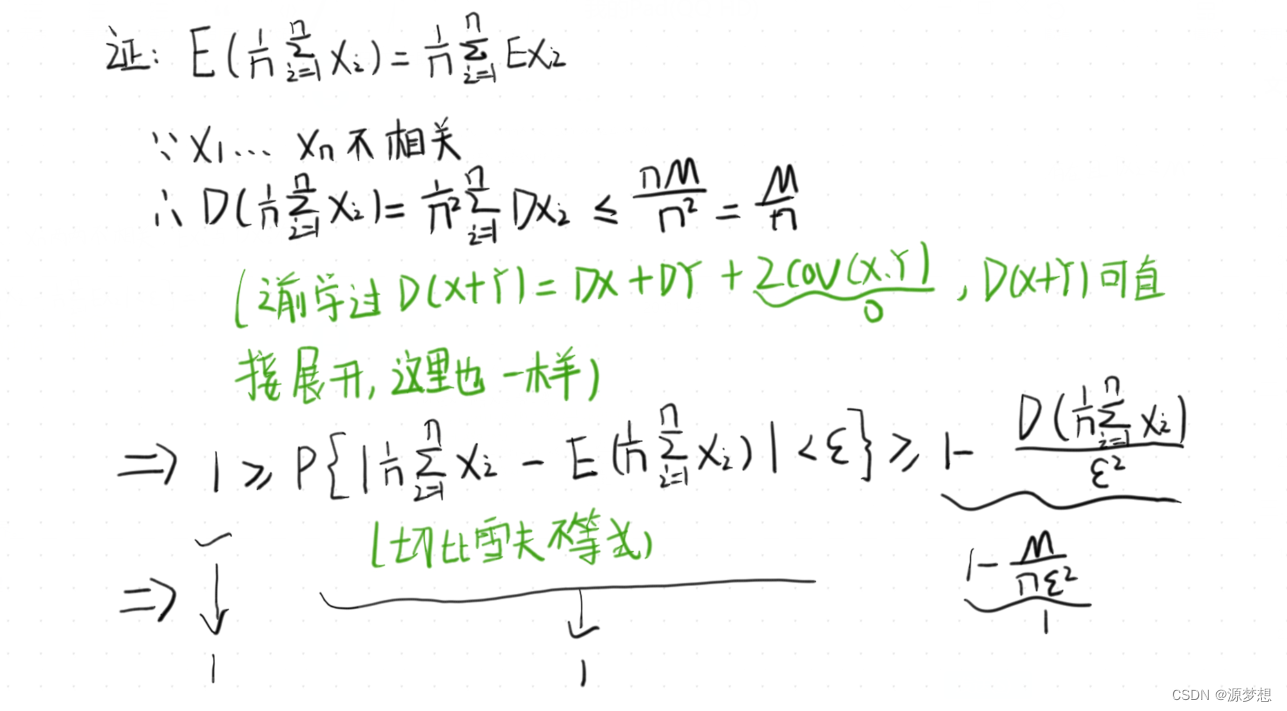 证: E(1/n ∑_{i=1}^{n} Xi) = 1/n ∑_{i=1}^{n} EXi
∵ X1… Xn 不相关
∴ D(1/n ∑_{i=1}^{n} Xi) = 1/n² ∑_{i=1}^{n} DXi ≤ nM/n² = M/n
(之前学过 D(X+Y) = DX + DY + 2COV(X.Y) , D(X+Y) 可直
0
接展开, 这里也一样)
⇒ 1 ≥ P{|1/n ∑_{i=1}^{n} Xi − E(1/n ∑_{i=1}^{n} Xi)| < ε} ≥ 1 − D(1/n ∑_{i=1}^{n} Xi)/ε²
(切比雪夫不等式)
1 − M/nε²
⇒ ↓ ↓ 1
1 1
CSDN @源梦想